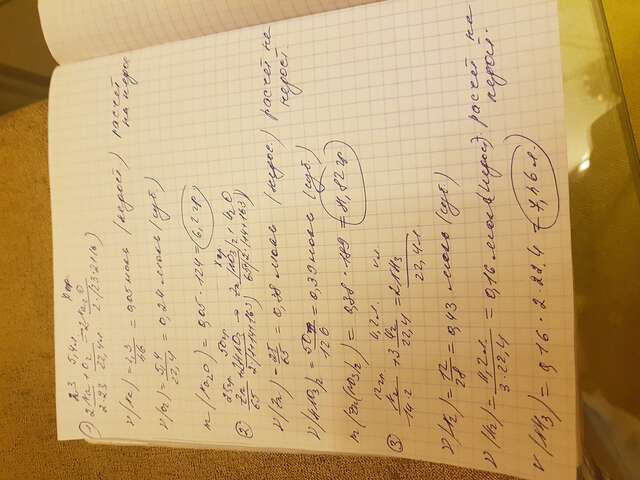 2,3 5,4л. Xгр.
1) 2Na + O2 = 2Na2O
2·23 22,4л 2·(23·2+16)
ν(Na) = 2,3/46 = 0,05 моль (недост) расчёт на недос
ν(O2) = 5,4/22,4 = 0,24 моль (изб.)
m(Na2O) = 0,05 · 124 = 6,2 гр
25гр. 50гр Xгр
2) Zn + 2HNO3 → Zn(NO3)2 + H2O
65 2(1+14+16·3) 65+2·(14+16·3)
ν(Zn) = 25/65 = 0,38 моль (недос.) расчёт на недост.
ν(HNO3)2 = 50гр/126 = 0,39 моль (изб.)
m(Zn(NO3)2) = 0,38 · 189 = 71,82 гр
12гр. 11,2л. Vл.
3) N2 + 3H2 = 2NH3
14·2 22,4 22,4л.
ν(N2) = 12/28 = 0,43 моль (изб.)
ν(H2) = 11,2л./3·22,4 = 0,16 моль (недост). расчёт на недост.
V(NH3) = 0,16 · 2 · 22,4 = 7,46 л.